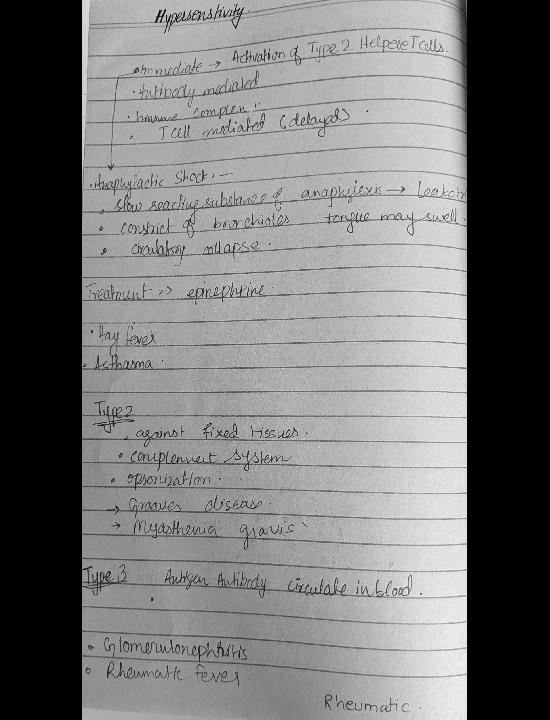 Hypersenstivity.
• Immediate → Activation of Type 2 Helpere T cells.
• Antibody mediated
• Immune complex :
• T cell mediated (delayed)
• Anaphylactic Shock :—
• slow reacting substance of anaphylexis →
• constrict of bronchioles tongue may swell.
• circulatory collapse.
Treatment => epinephrine.
• Hay fever
• Asthama.
Type 2
• against fixed tissues.
• complement system
• opsonization.
→ Graves disease.
→ Myasthenia gravis
Type 3 Antigen Antibody circulate in blood.
• Glomerulonephritis
• Rheumatic fever
Rheumatic.